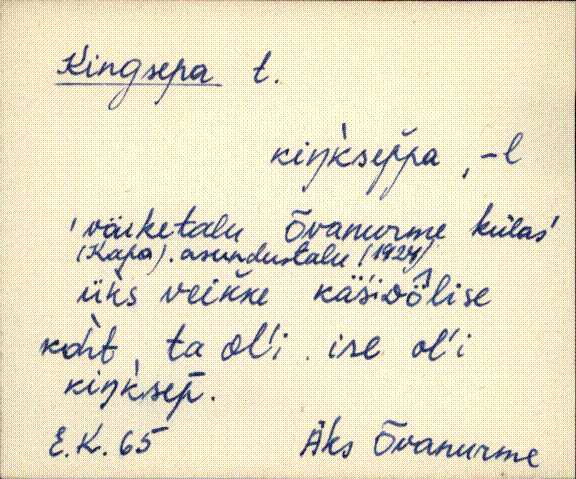 Kingsepa t.
kiŋ̀kseppa, -l
'väiketalu Õvanurme külas'
(Kapa). asundustalu (1924)
ük̀s veikke käsìvõlise
kòht, ta ol'i ise ol'i
kiŋ̀ksep̄.
E.K. 65 Äks Õvanurme